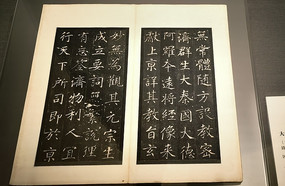 無常體隨方設教密
濟群生大秦國大德
阿羅本遠將經像來
獻上京詳其教旨玄
妙無為觀其元宗生
成立要詞無繁說理
有忘筌濟物利人宜
行天下所司即於京